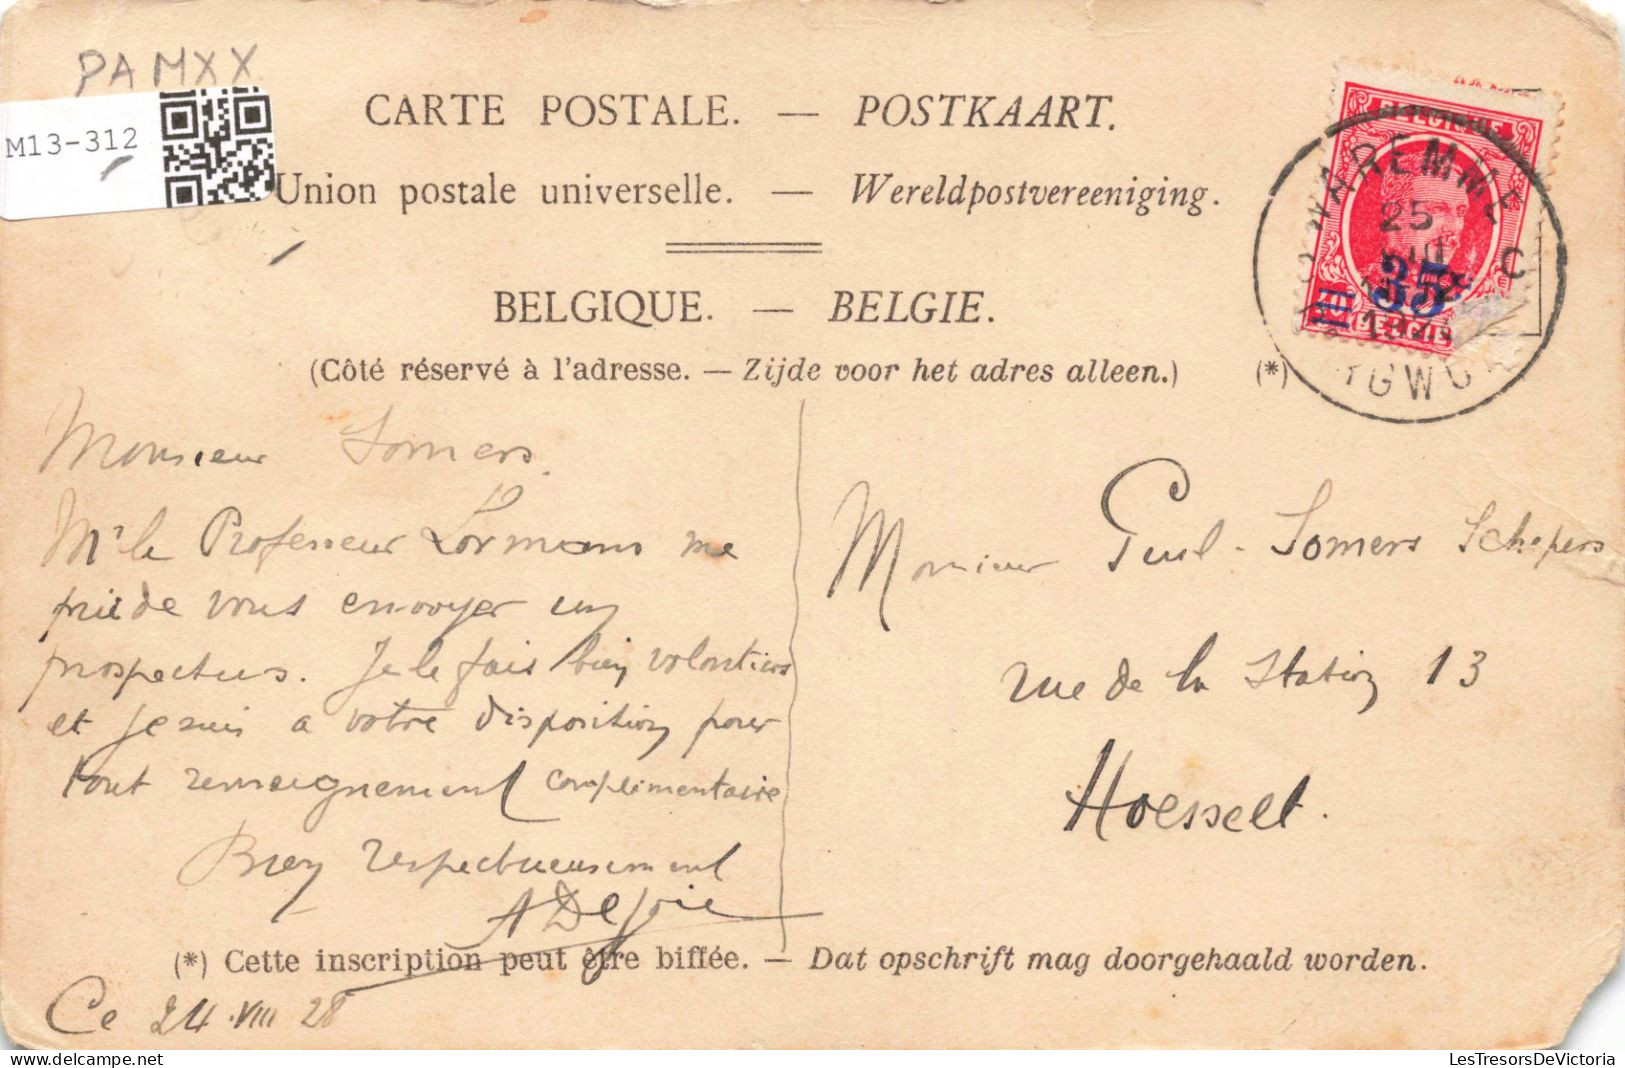 PAMXX
M13-312
CARTE POSTALE. — POSTKAART.
Union postale universelle. — Wereldpostvereeniging.
BELGIQUE. — BELGIE.
(Côté réservé à l'adresse. — Zijde voor het adres alleen.) (*)
BELGIQUE
35
BELGIE
WAREMME
25
C
Monsieur Somers.
Mr le Professeur Lormans me
prie de vous envoyer un
prospectus. Je le fais bien volontiers
et je suis a votre disposition pour
tout renseignement complimentaire
Bien respectueusement
A Dejoie
Monsieur Guil. Somers Schepers
rue de la Station 13
Hoesselt.
(*) Cette inscription peut être biffée. — Dat opschrift mag doorgehaald worden.
Ce 24.VIII 28
LesTresorsDeVictoria